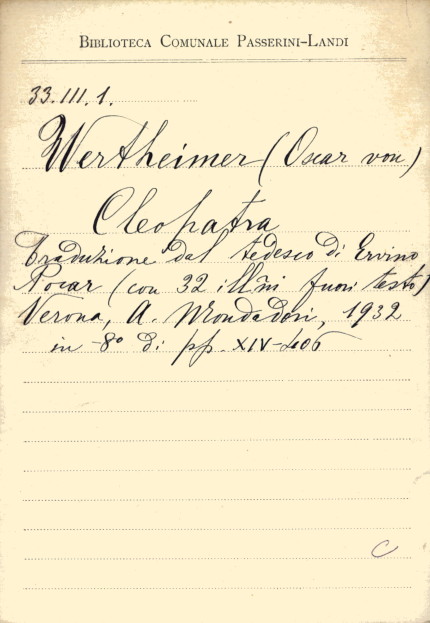 BIBLIOTECA COMUNALE PASSERINI-LANDI
33.III.1.
Wertheimer (Oscar von)
Cleopatra
Traduzione dal tedesco di Ervino
Pocar (con 32 illni fuori testo)
Verona, A. Mondadori, 1932
in -8º di pp. XIV-406
C